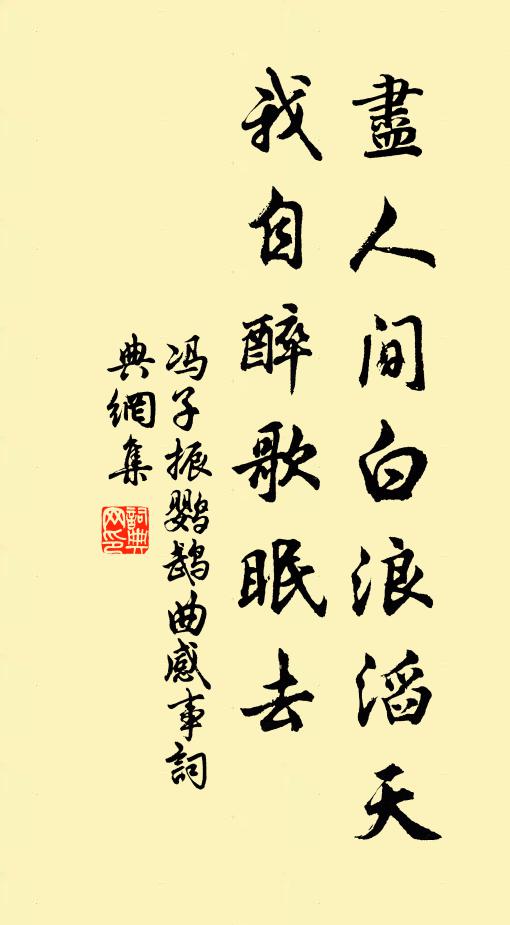 盡人间白浪滔天
我自醉歌眠去
冯子振鹦鹉曲感事詞
典網集
詞典網印